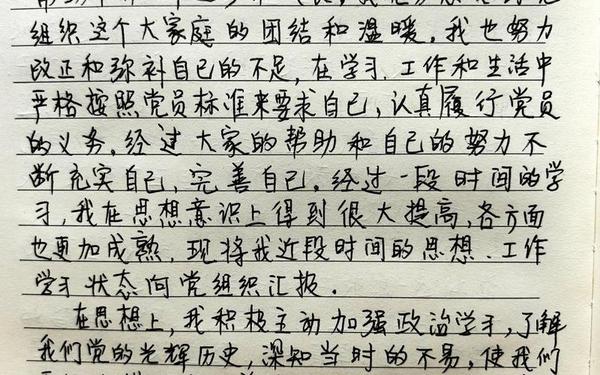 组织这个大家庭的团结和温暖，我也努力
改正和弥补自己的不足，在学习、工作和生活中
严格按照党员标准来要求自己，认真履行党员
的义务。经过大家的帮助和自己的努力不
断充实自己，完善自己。经过一段时间的学
习，我在思想意识上得到很大提高，各方面
也更加成熟，现将我近段时间的思想、工作
学习状态向党组织汇报。
在思想上，我积极主动加强政治学习，了解
我们党的光辉历史，深知当时的不易，使我们